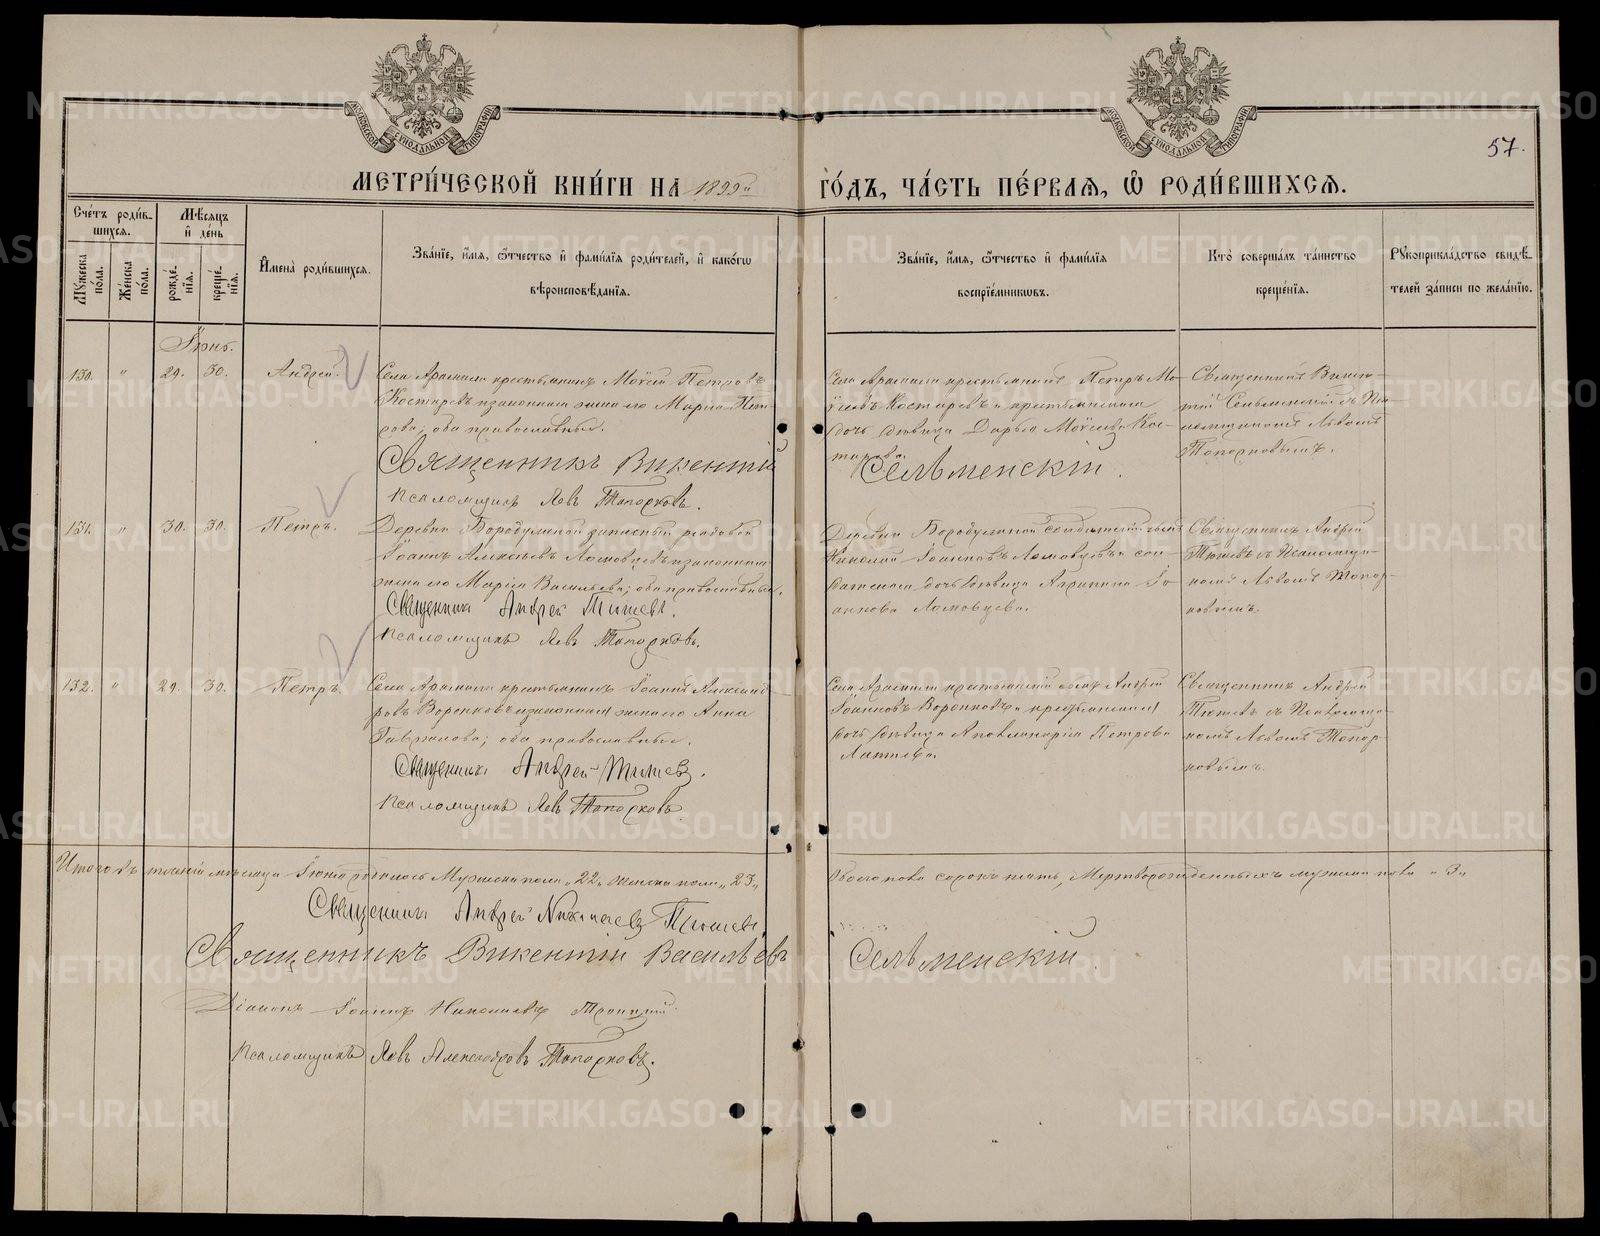 МОСКОВСКОЙ СѴНОДАЛЬНОЙ ТИПОГРАФІИ
МОСКОВСКОЙ СѴНОДАЛЬНОЙ ТИПОГРАФІИ
57.
МЕТРИ́ЧЕСКОЙ КНИ́ГИ НА 1899й ГО́ДЪ, ЧА́СТЬ ПЕ́РВАѦ, Ѡ РОДИ́ВШИХСѦ.
Сче́тъ роди́в-
шихсѧ.
Мꙋжеска по́ла.
Же́нска по́ла.
Мѣ́сѧцъ и де́нь
рожде́нїѧ.
креще́нїѧ.
И҆мена̀ роди́вшихсѧ.
Зва́нїе, и҆́мѧ, ѻ҆́тчество и҆ фами́лїѧ роди́телей, и҆ како́гѡ
вѣроисповѣ́данїѧ.
Зва́нїе, и҆́мѧ, ѻ҆́тчество и҆ фами́лїѧ
воспрїе́мникѡвъ.
Кто̀ соверша́лъ та́инство
креще́нїѧ.
Рꙋкоприкла́дство свидѣ́-
телей за́писи по жела́нїю.
Іюнь.
130. " 29. 30. Андрей.
Села Арамили крестьянинъ Моѵсей Петровъ
Костаревъ и законная жена его Марія Пет-
рова; оба православные.
Священникъ Викентій Сельменскій.
Псаломщикъ Левъ Топорковъ.
Села Арамили крестьянинъ Петръ Мо-
ѵсеевъ Костаревъ и крестьянская
дочь дѣвица Дарья Моѵсеева Кос-
тарева.
Священникъ Викен-
тій Сельменскій съ Пса-
ломщикомъ Львомъ
Топорковымъ.
131. " 30. 30. Петръ.
Деревни Бородулиной запасный рядовой
Іоаннъ Алексѣевъ Ломовцевъ и законная
жена его Марія Васильева; оба православные.
Священникъ Андрей Тюшевъ.
Псаломщикъ Левъ Топорковъ.
Деревни Бородулиной солдатскій сынъ
Николай Іоанновъ Ломовцевъ и сол-
датская дочь дѣвица Агрипина Іо-
аннова Ломовцева.
Священникъ Андрей
Тюшевъ съ Псаломщи-
комъ Львомъ Топор-
ковымъ.
132. " 29. 30. Петръ.
Села Арамили крестьянинъ Іоаннъ Александ
ровъ Воронковъ и законная жена его Анна
Гаврилова; оба православные.
Священникъ Андрей Тюшевъ.
Псаломщикъ Левъ Топорковъ.
Села Арамили крестьянскій сынъ Андрей
Іоанновъ Воронковъ и крестьянская
дочь дѣвица Аполлинарія Петрова
Лаптева.
Священникъ Андрей
Тюшевъ съ Псаломщи-
комъ Львомъ Топор-
ковымъ.
Итого въ теченіи мѣсяца Іюня родилось Мужеска пола „22„ женска пола „23„ Обоего пола сорокъ пять, Мертворожденныхъ мужска пола „3„
Священникъ Андрей Николаевъ Тюшевъ.
Священникъ Викентій Васильевъ Сельменскій.
Діаконъ Іоаннъ Николаевъ Троицкій.
Псаломщикъ Левъ Александровъ Топорковъ.
METRIKI.GASO-URAL.RU